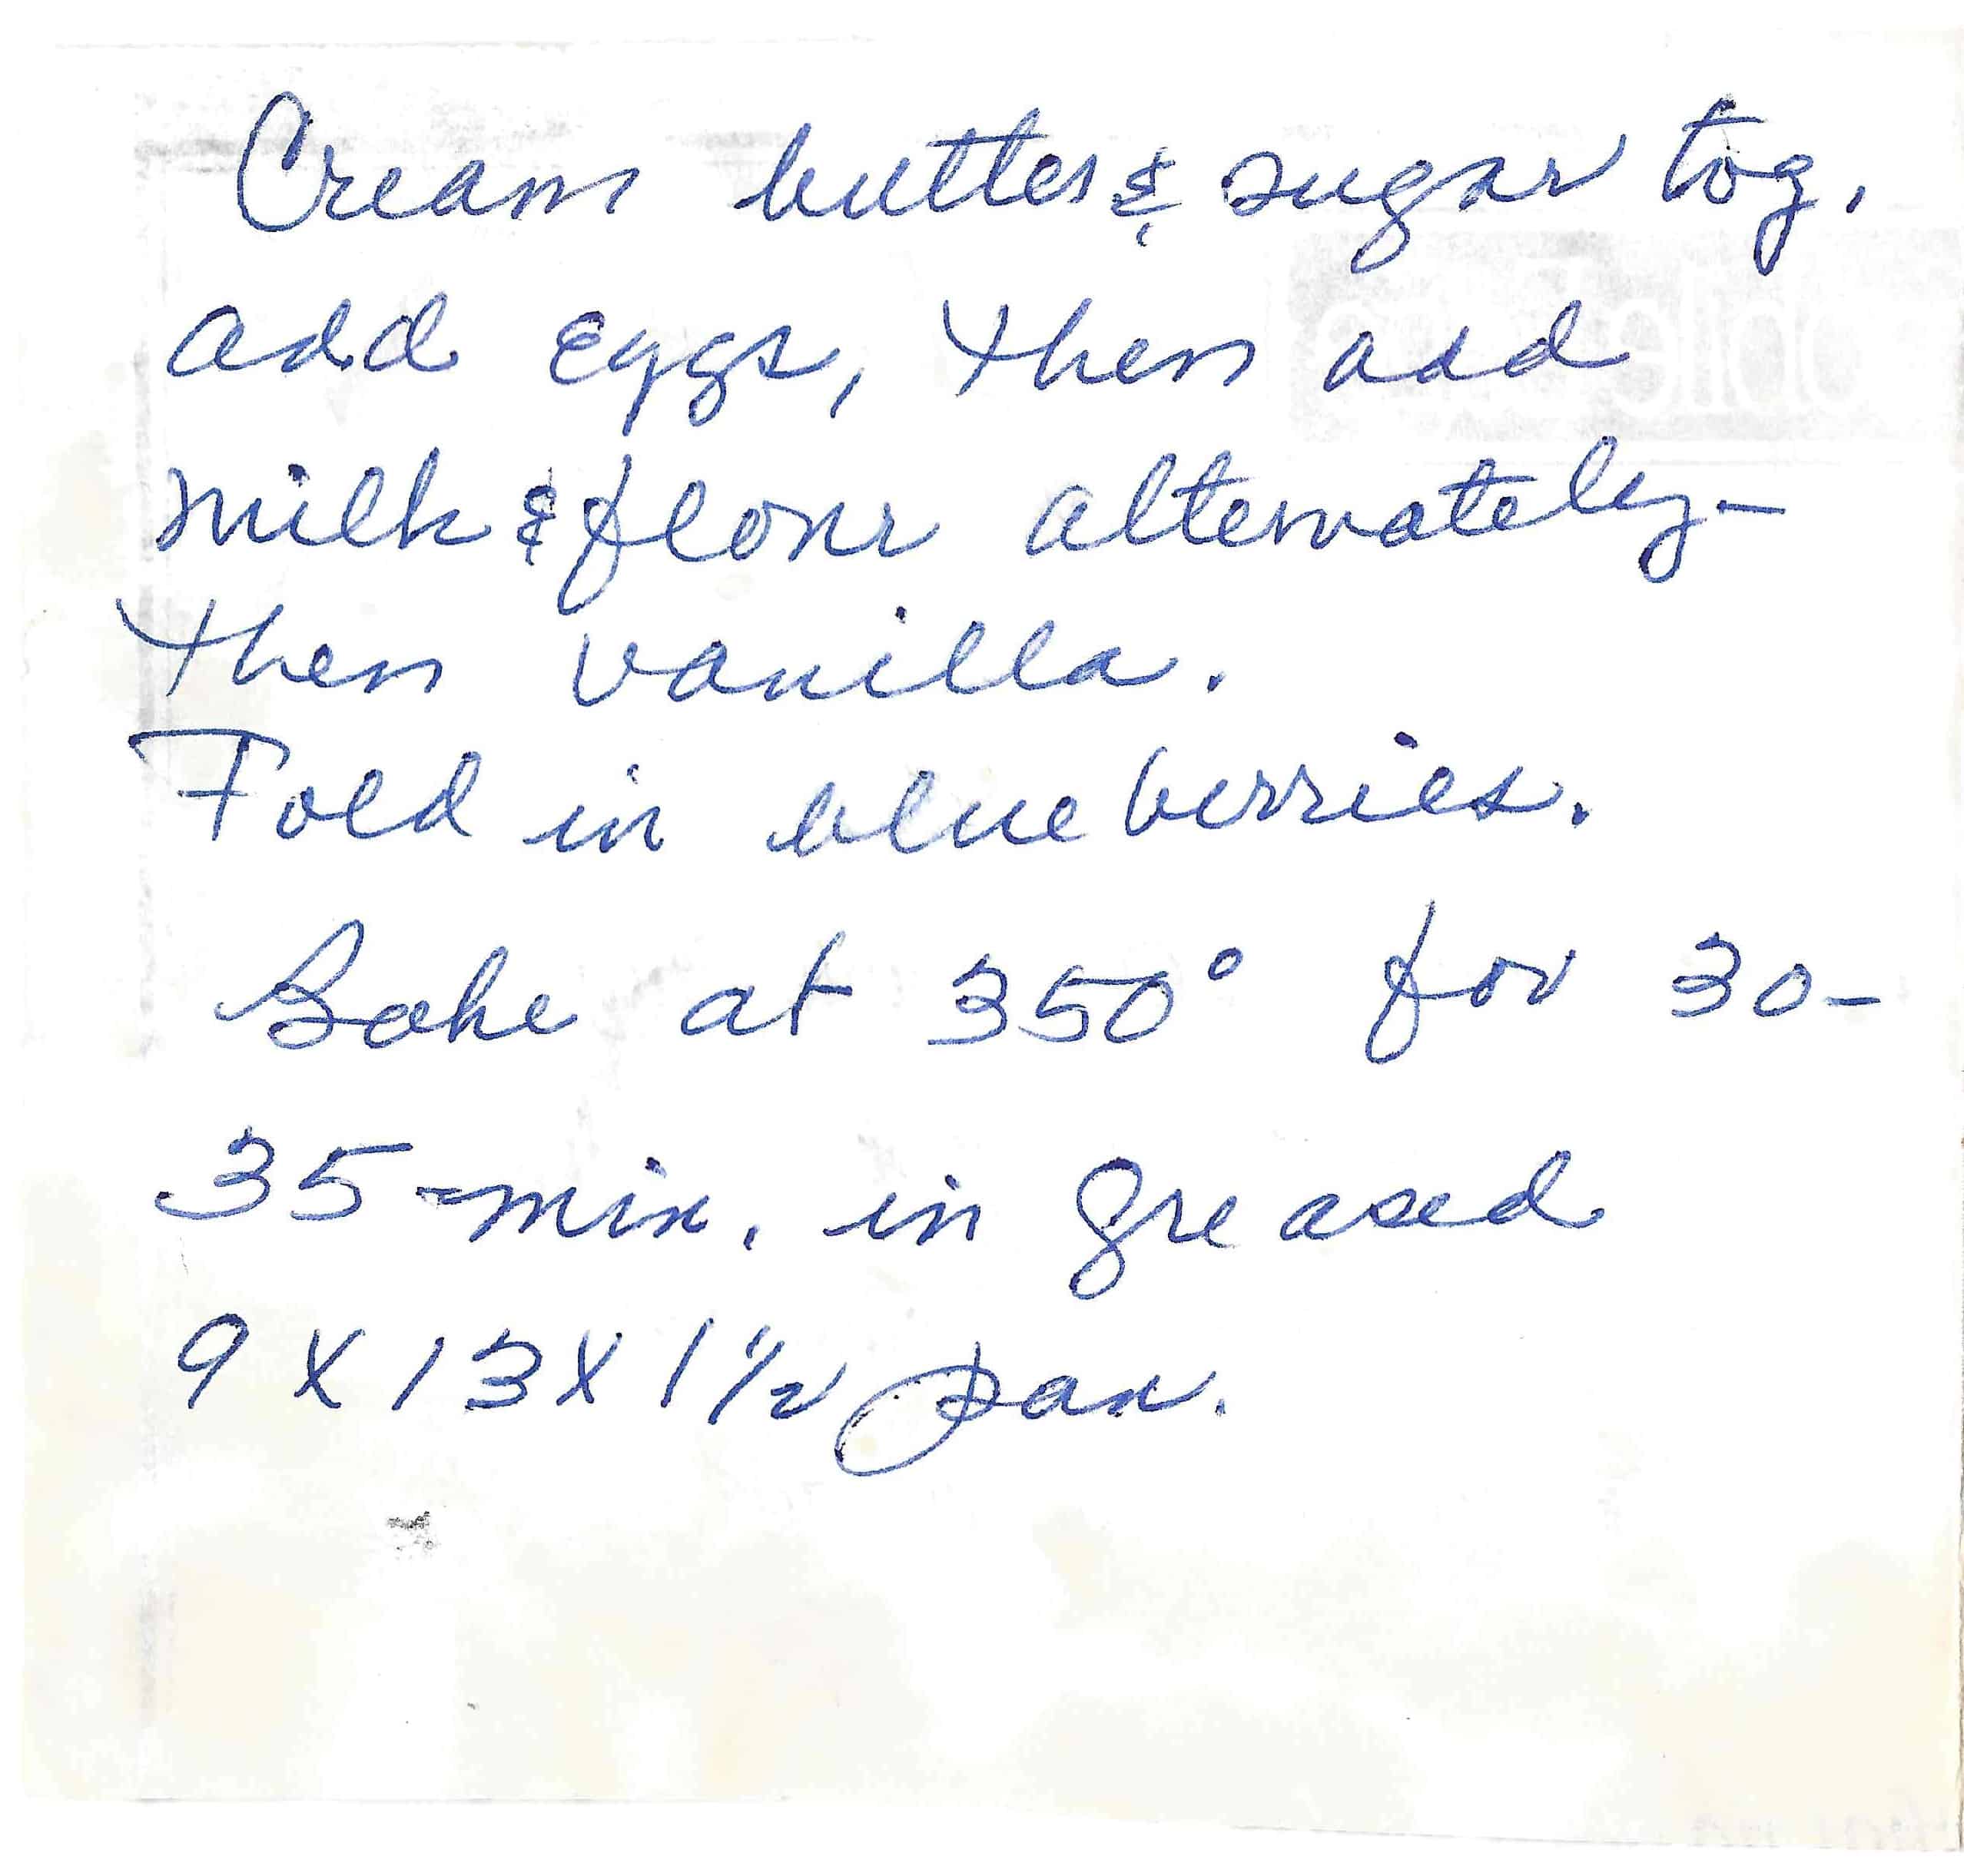 Cream butter & sugar tog,
add eggs, then add
milk & flour alternately -
then vanilla.
Fold in blueberries.
Bake at 350° for 30-
35 min. in greased
9 X 13 X 1 1/2 pan.